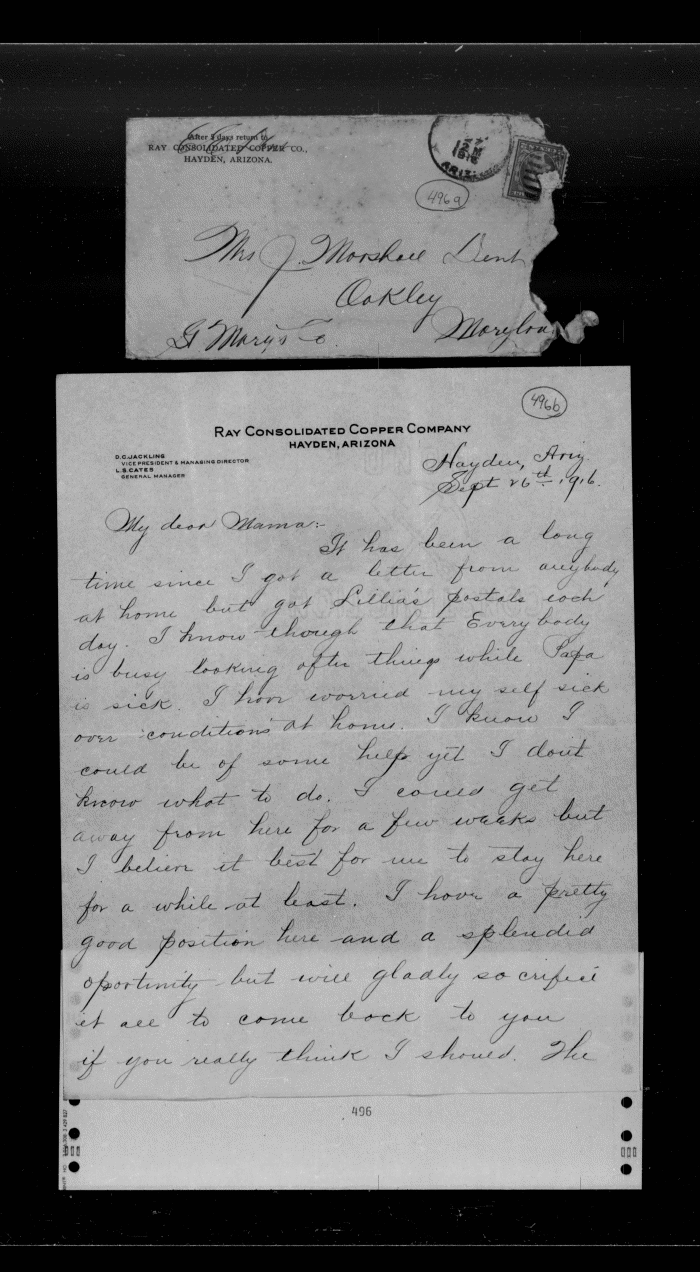 After 5 days return to
RAY CONSOLIDATED COPPER CO.,
HAYDEN, ARIZONA.
12 M
1916
ARIZ
496a
Mrs J. Marshall Dent
Oakley
St Mary's Co. Marylan
496b
RAY CONSOLIDATED COPPER COMPANY
HAYDEN, ARIZONA
D.C. JACKLING
VICE PRESIDENT & MANAGING DIRECTOR
L.S. CATES
GENERAL MANAGER
Hayden, Ariz
Sept 26th 1916.
My dear Mama:-
It has been a long
time since I got a letter from anybody
at home but got Lillia's postals each
day. I know though that Everybody
is busy looking after things while Papa
is sick. I have worried my self sick
over conditions at home. I know I
could be of some help yet I dont
know what to do. I could get
away from here for a few weeks but
I believe it best for me to stay here
for a while at least. I have a pretty
good position here and a splendid
oportunity but will gladly sacrifice
it all to come back to you
if you really think I should. The
496